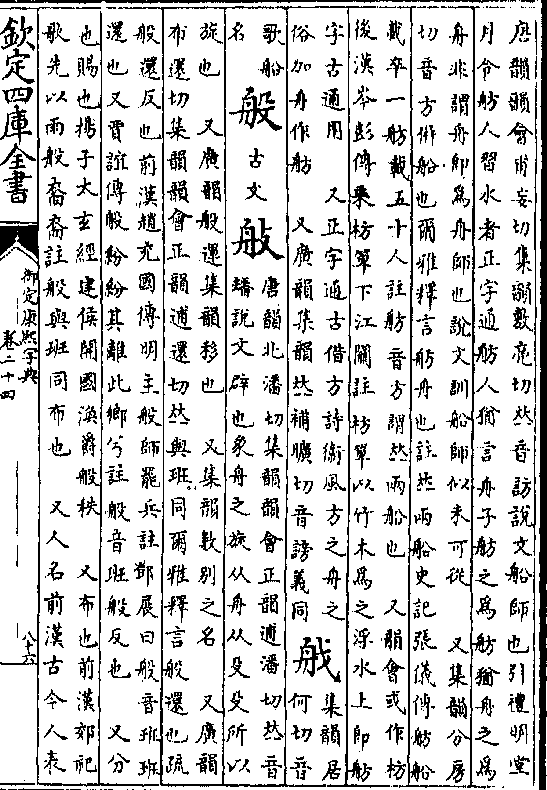 唐韻韻會甫妄切集韻敷亮切𠀤音訪說文船師也引禮明堂
月令舫人習水者正字通舫人猶言舟子舫之爲舫猶舟之爲
舟非謂舟卽爲舟師也說文訓船師似未可從　又集韻分房
切音方倂船也爾雅釋言舫舟也註𠀤兩船史記張儀傳舫船
載卒一舫載五十人註舫音方謂𠀤兩船也　又韻會或作枋
後漢岑彭傳乗枋箄下江關註枋箄以竹木爲之浮水上卽舫
字古通用　又正字通古借方詩衞風方之舟之
俗加舟作舫　又廣韻集韻𠀤補曠切音謗義同　𦨍 集韻居何切音
歌船
名　般 古文 𣪂 唐韻北潘切集韻韻會正韻逋潘切𠀤音
𤳖說文辟也象舟之旋从舟从殳殳所以
旋也　又廣韻般運集韻移也　又集韻數別之名　又廣韻
布還切集韻韻會正韻逋還切𠀤與班同爾雅釋言般還也疏
般還反也前漢趙充國傳明主般師罷兵註鄧展曰般音班班
還也又賈誼傳般紛紛其離此郵兮註般音班般反也　又分
也賜也揚子太玄經建侯開國渙爵般秩　又布也前漢郊祀
歌先以雨般裔裔註般與班同布也　又人名前漢古今人表
欽定四庫全書
御定康熙字典
卷二十四
八十六